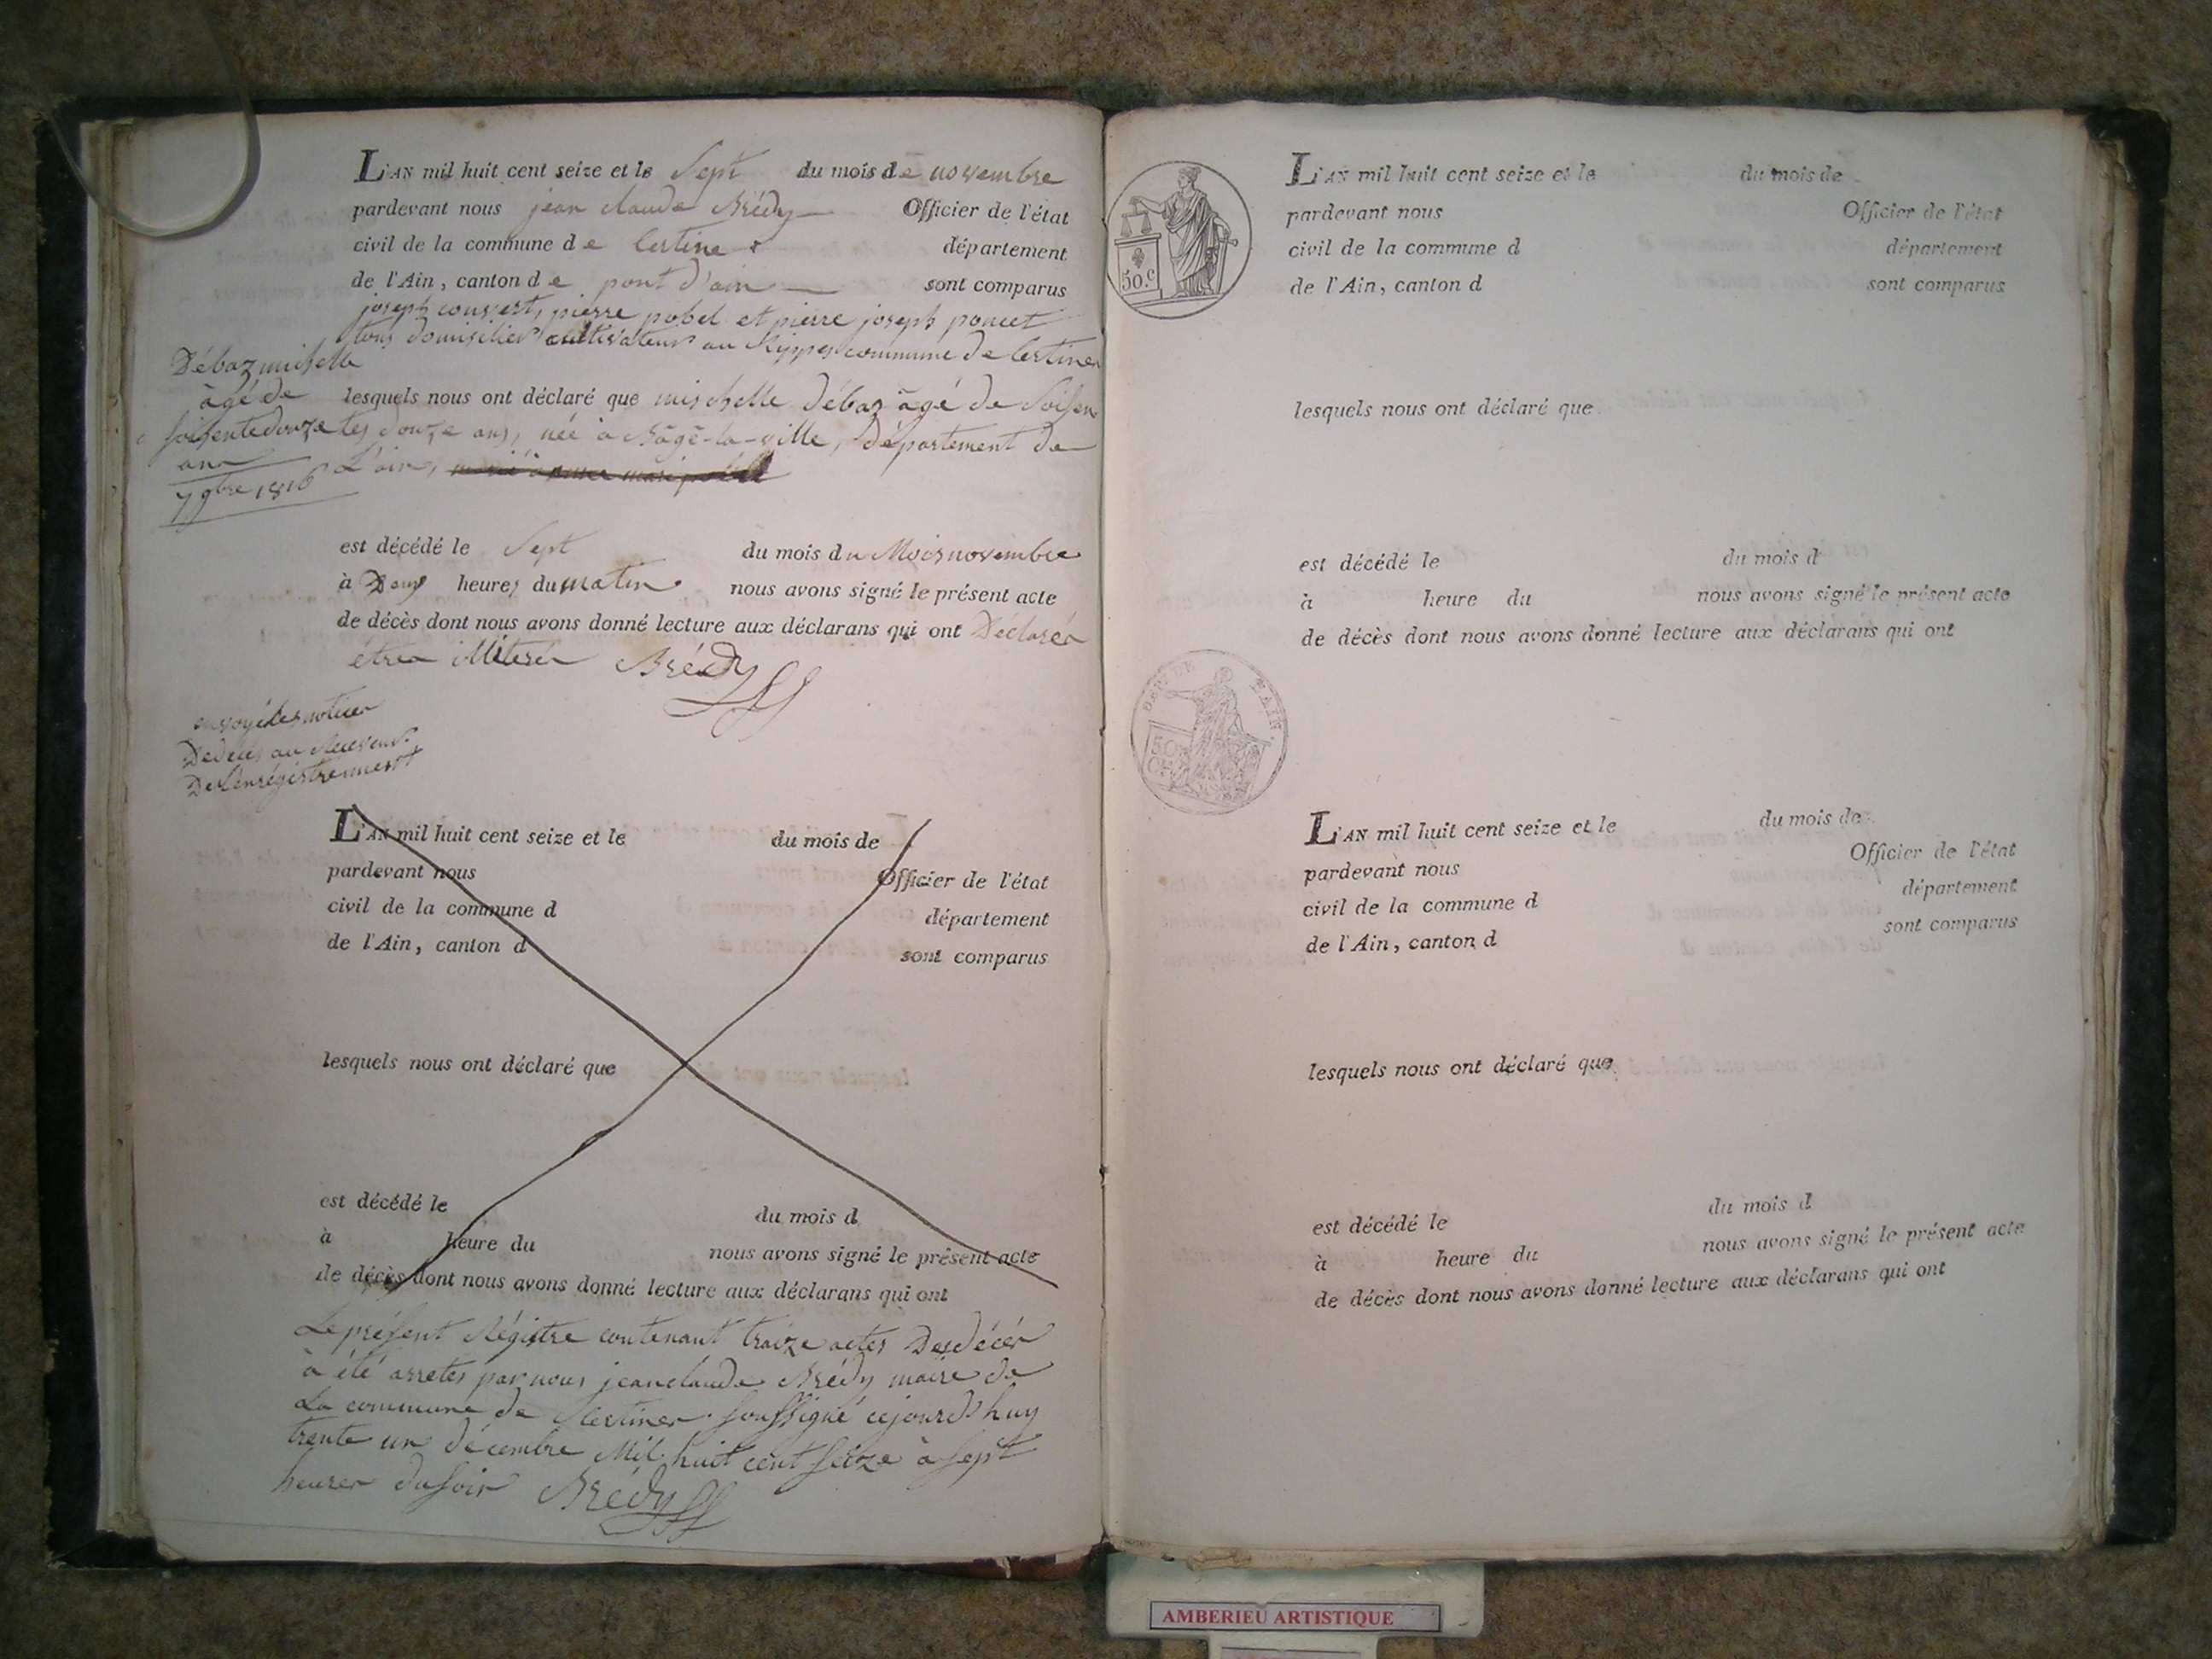 L'AN mil huit cent seize et le Sept du mois de novembre
pardevant nous jean claude Brédy Officier de l'état
civil de la commune de Certines département
de l'Ain, canton de pont d'ain sont comparus
joseph convert, pierre pobel et pierre joseph poncet
tous domiciliés cultivateurs au Rippes commune de Certines
Débaz mischelle
âgé de
soissentedouze
ans
7 9bre 1816
lesquels nous ont déclaré que mischelle Débaz âgé de Soissen
tes douze ans, née à Bâgé-la-ville, département de
L'ain,
est décédé le Sept du mois du Mois novembre
à Deux heures du matin nous avons signé le présent acte
de décès dont nous avons donné lecture aux déclarans qui ont Declarés
êtres illiterés Brédy
envoyé les notices
De decés au Receveur
De L'enrégistrement
L'AN mil huit cent seize et le du mois de
pardevant nous Officier de l'état
civil de la commune d département
de l'Ain, canton d sont comparus
lesquels nous ont déclaré que
est décédé le du mois d
à heure du nous avons signé le présent acte
de décès dont nous avons donné lecture aux déclarans qui ont
Le présent Régistre contenant traize actes Des décés
à été arretés par nous jean claude Brédy maire de
La commune de Certines soussigné cejourd'huy
trente un décembre Mil huit cent seize à sept
heures du soir Brédy
L'AN mil huit cent seize et le du mois de
pardevant nous Officier de l'état
civil de la commune d département
de l'Ain, canton d sont comparus
50.c
lesquels nous ont déclaré que
est décédé le du mois d
à heure du nous avons signé le présent acte
de décès dont nous avons donné lecture aux déclarans qui ont
L'AIN.
50
L'AN mil huit cent seize et le du mois de
pardevant nous Officier de l'état
civil de la commune d département
de l'Ain, canton d sont comparus
lesquels nous ont déclaré que
est décédé le du mois d
à heure du nous avons signé le présent acte
de décès dont nous avons donné lecture aux déclarans qui ont
AMBERIEU ARTISTIQUE